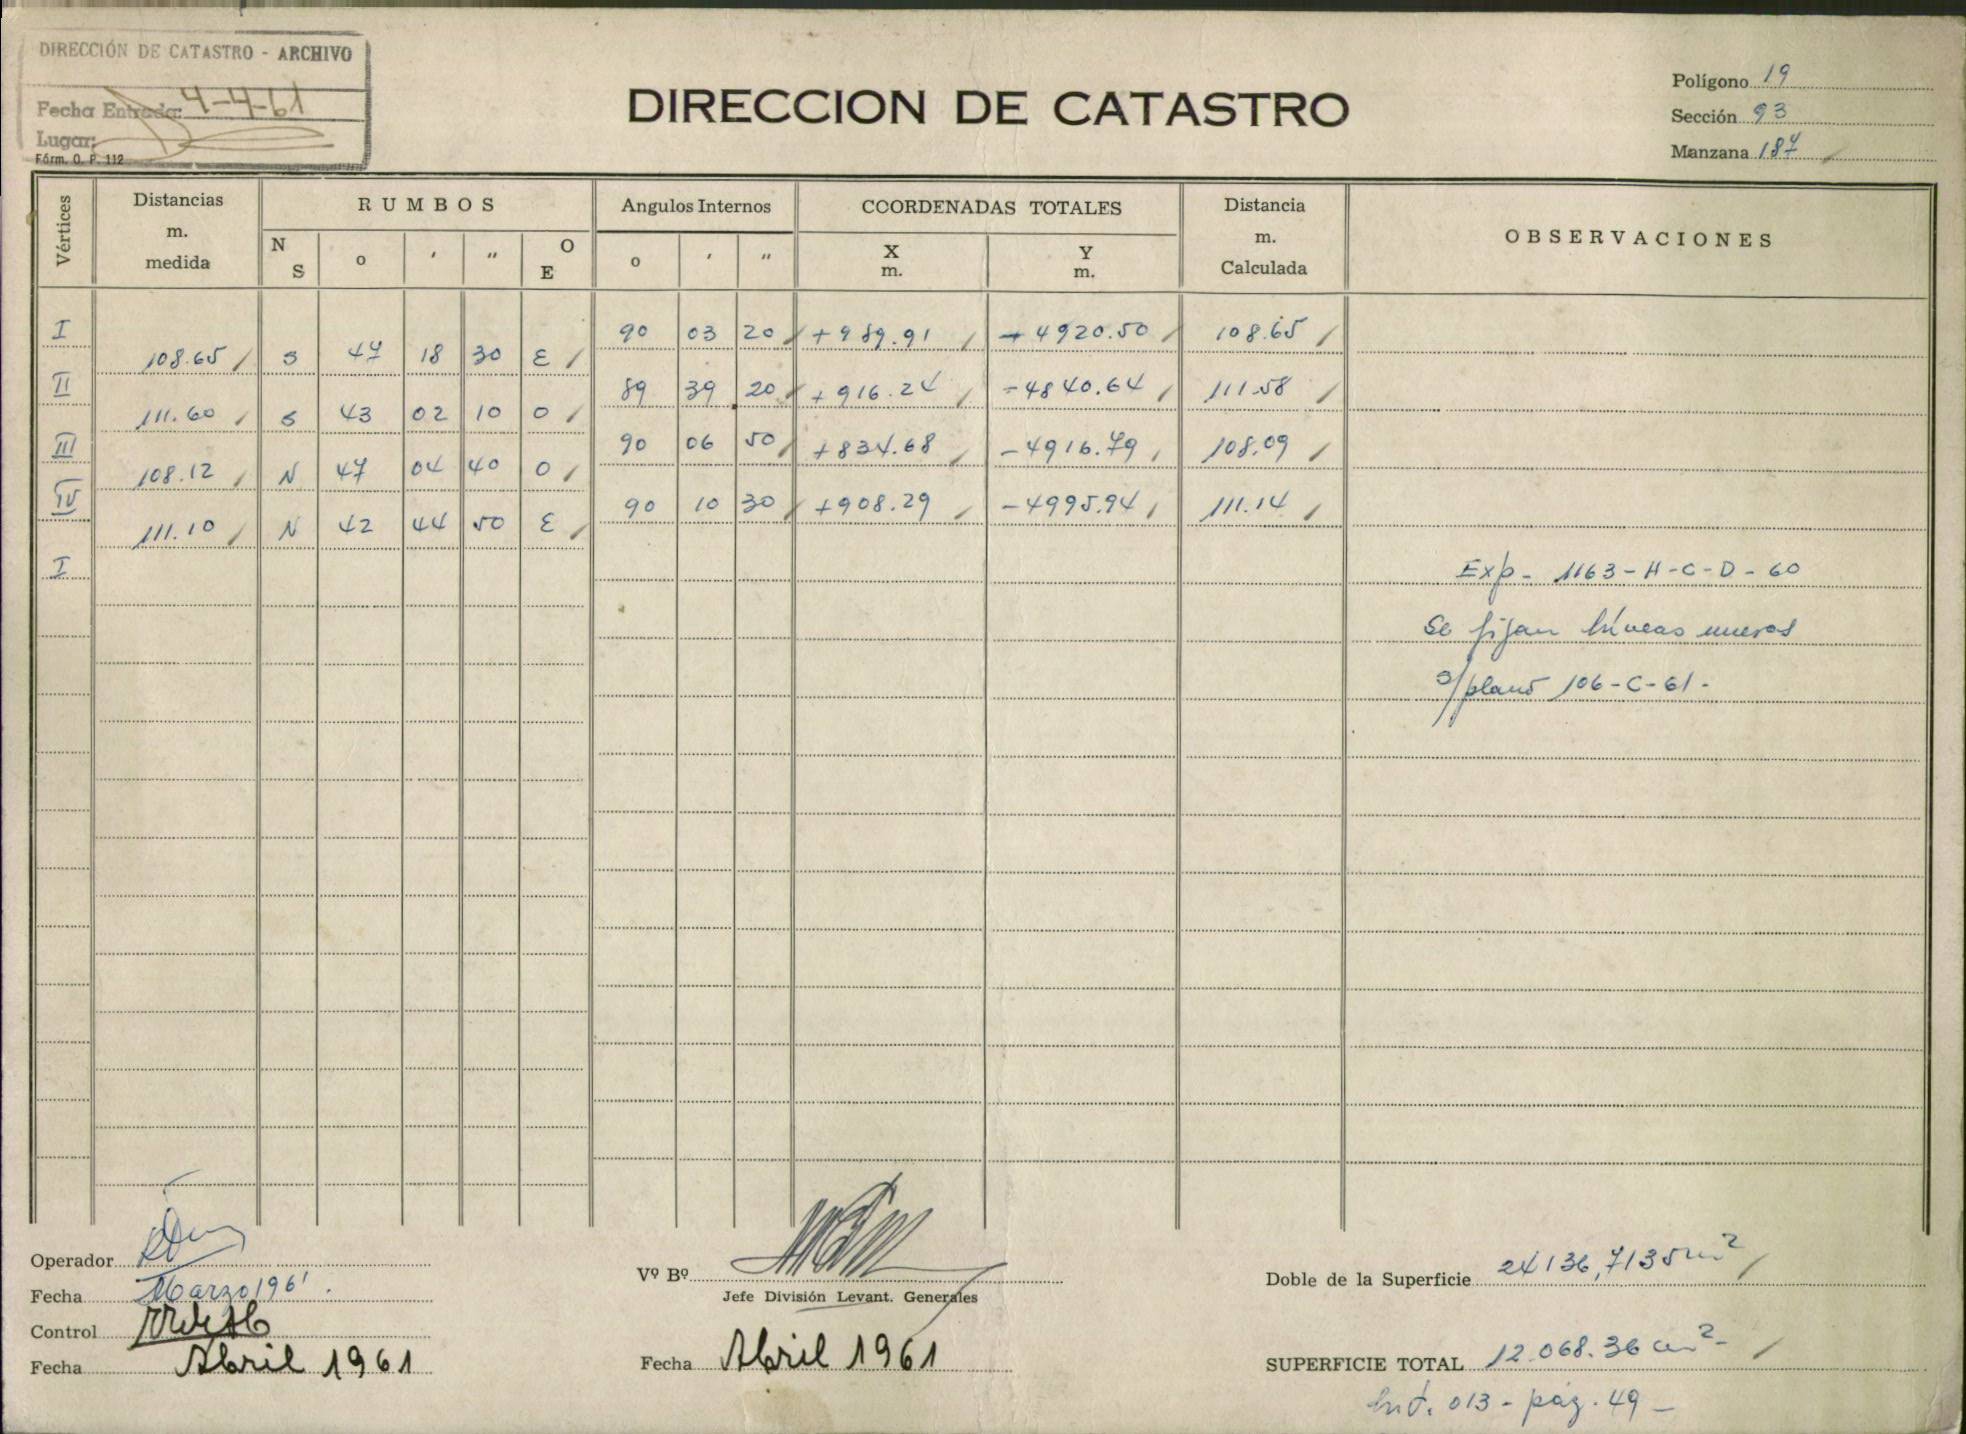 DIRECCIÓN DE CATASTRO - ARCHIVO
Fecha Entrada: 4-4-61
Lugar:
Fórm. O. P. 112
DIRECCION DE CATASTRO
Polígono 19
Sección 93
Manzana 187
Vértices Distancias m. medida RUMBOS N S o ' " O E Angulos Internos o ' " COORDENADAS TOTALES X m. Y m. Distancia m. Calculada OBSERVACIONES
I 90 03 20 +989.91 -4920.50 108.65
108.65 S 47 18 30 E
II 89 39 20 +916.24 -4840.64 111.58
111.60 S 43 02 10 O
III 90 06 50 +834.68 -4916.79 108.09
108.12 N 47 04 40 O
IV 90 10 30 +908.29 -4995.94 111.14
111.10 N 42 44 50 E
I
Exp. 1163-H-C-D-60
Se fijan líneas nuevas
s/plano 106-C-61-
Operador
Fecha Marzo 1961.
Control
Fecha Abril 1961
Vº Bº
Jefe División Levant. Generales
Fecha Abril 1961
Doble de la Superficie 24136,7135 m²
SUPERFICIE TOTAL 12.068.36 m²-
013 - pág. 49 -